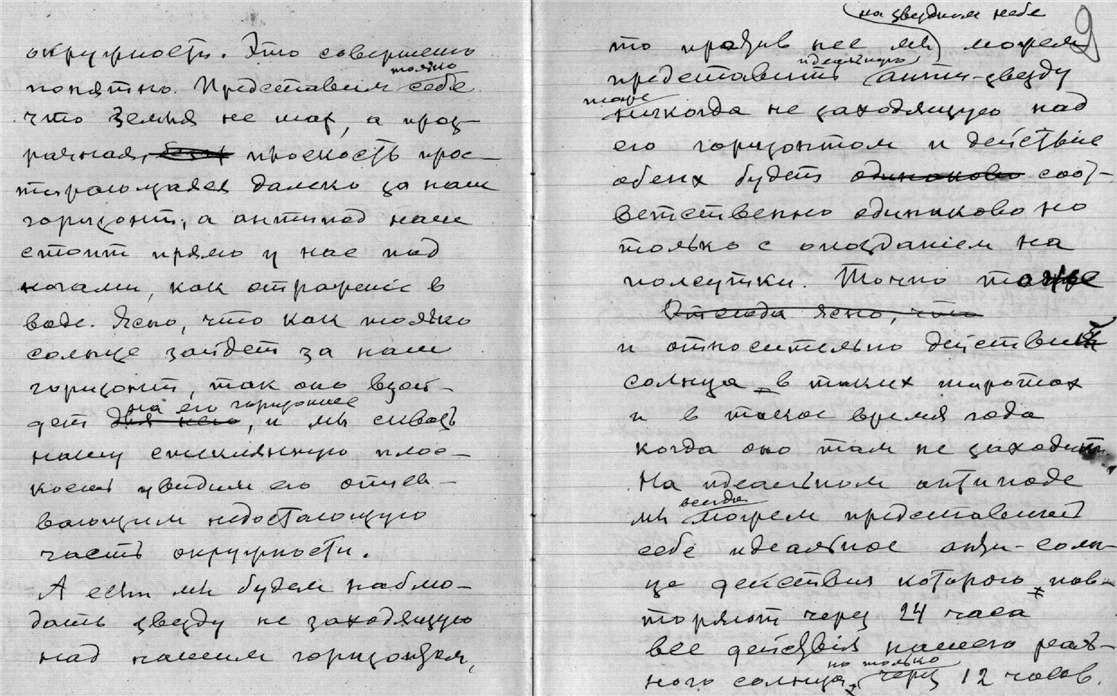 округности. Это совершено
только
понятно. Представим себе
что Земля не шар, а проз-
рачная, плоскость прос-
тирающаяся далеко за наш
горизонт, а антипод наш
стоит прямо у нас под
ногами, как отражение в
воде. Ясно, что как только
солнце зайдет за наш
горизонт, так оно взой-
на его горизонте
дет для него, и мы сквозь
нашу стеклянную плос-
кость увидим его описы-
вающим недостающую
часть окружности.
А если мы будем наблю-
дать звезду не заходящую
над нашим горизонтом,
на звездном небе
9
то против нее мы можем
идеальную
представить анти-звезду
тоже
никогда не заходящую над
его горизонтом и действие
обеих будет одинаково соот-
ветственно одинаково но
только с опозданием на
полсутки. Точно также
Отсюда ясно, что
и относительно действий
солнца – в таких широтах
и в такое время года
когда оно там не заходит.
На идеальном антиподе
всегда
мы можем представить
себе идеальное анти-солн-
це действия которого пов-
торяют через 24 часа
все действия нашего реаль-
но только
ного солнца, через 12 часов.